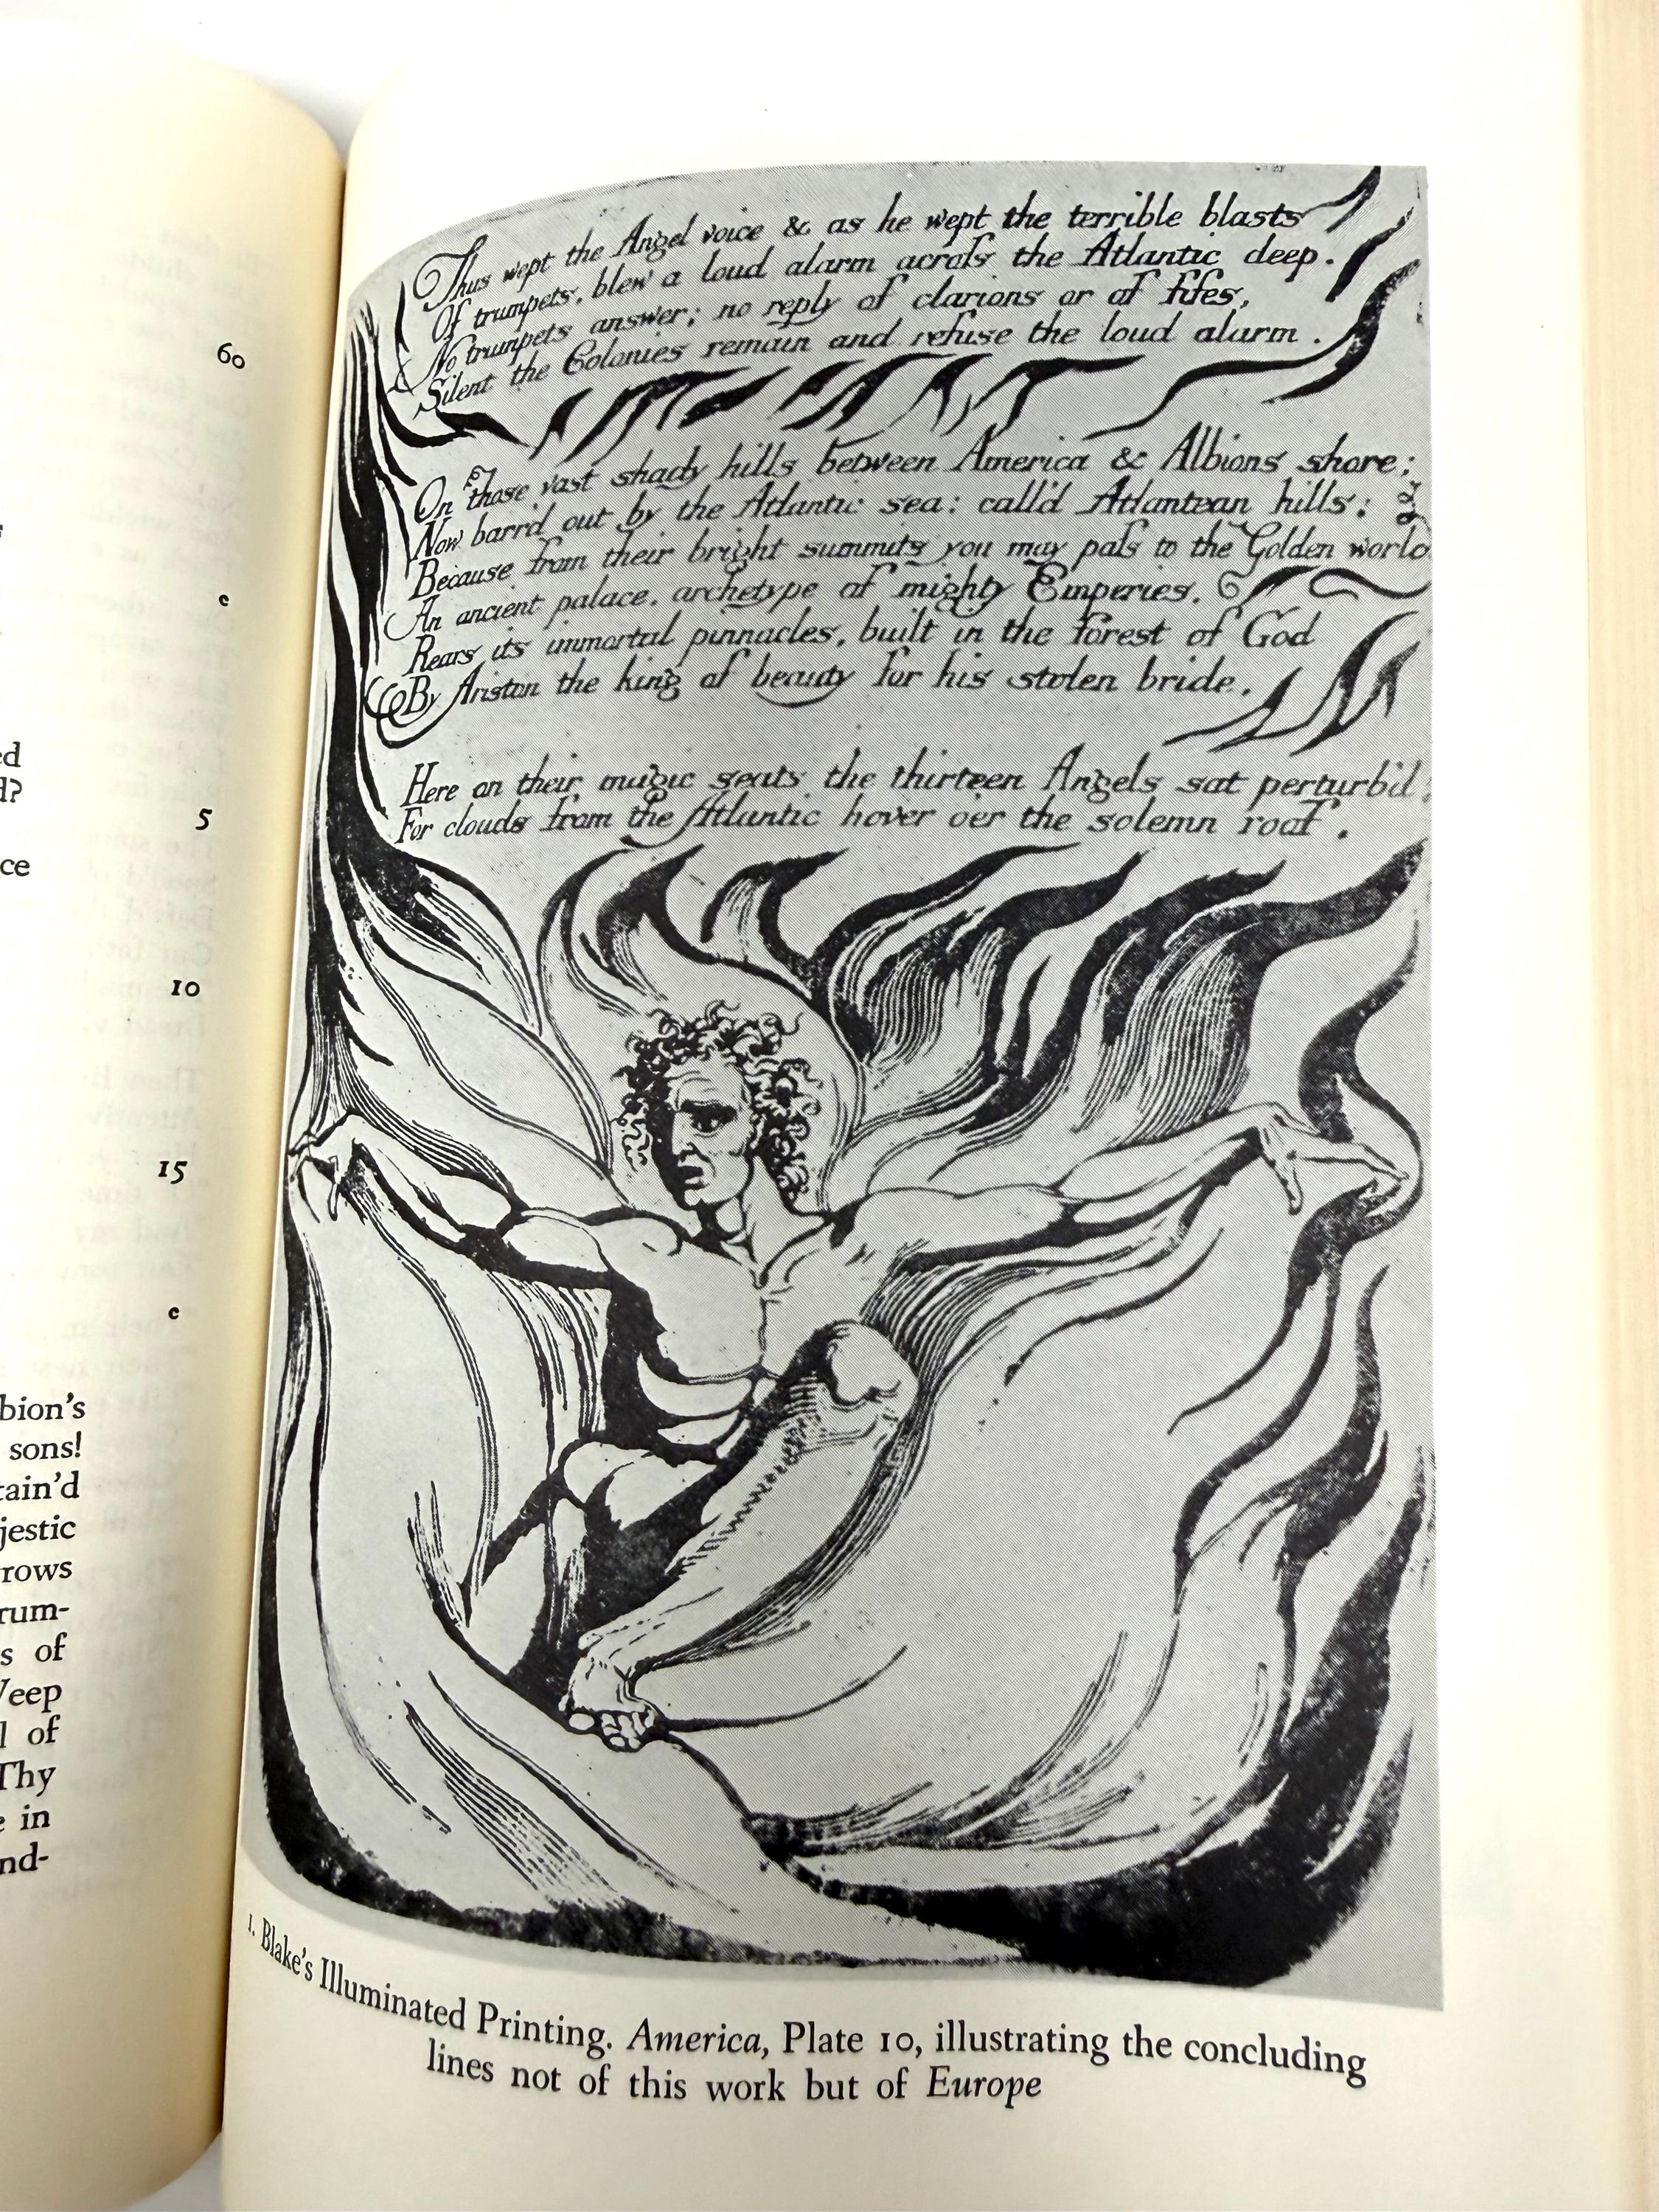 60
c
ed
d?
5
ce
10
15
c
bion's
sons!
tain'd
jestic
rows
rum-
s of
Veep
l of
Thy
e in
nd-
Thus wept the Angel voice & as he wept the terrible blasts
Of trumpets, blew a loud alarm across the Atlantic deep.
No trumpets answer; no reply of clarions or of fifes,
Silent the Colonies remain and refuse the loud alarm.
On those vast shady hills between America & Albions shore;
Now barr'd out by the Atlantic sea: call'd Atlantean hills:
Because from their bright summits you may pass to the Golden world
An ancient palace, archetype of mighty Emperies,
Rears its immortal pinnacles, built in the forest of God
By Ariston the king of beauty for his stolen bride,
Here on their magic seats the thirteen Angels sat perturb'd
For clouds from the Atlantic hover o'er the solemn roof.
1. Blake's Illuminated Printing. America, Plate 10, illustrating the concluding
lines not of this work but of Europe